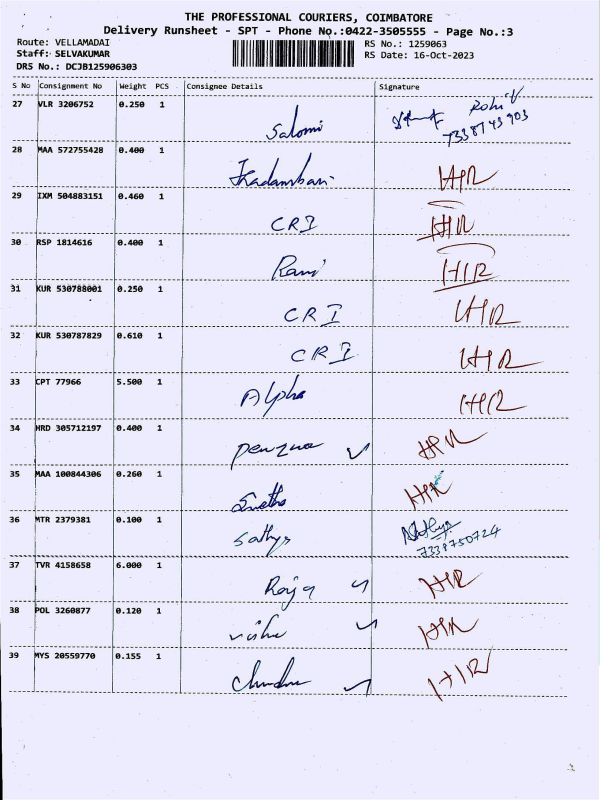 THE PROFESSIONAL COURIERS, COIMBATORE
Delivery Runsheet - SPT - Phone No.:0422-3505555 - Page No.:3
Route: VELLAMADAI RS No.: 1259063
Staff: SELVAKUMAR RS Date: 16-Oct-2023
DRS No.: DCJB125906303
S No Consignment No Weight PCS Consignee Details Signature
27 VLR 3206752 0.250 1 Salomi
28 MAA 572755428 0.400 1 Kadambari HR
29 IXM 504883151 0.460 1 CRI HR
30 RSP 1814616 0.400 1 Rani HR
31 KUR 530788001 0.250 1 CRI HR
32 KUR 530787829 0.610 1 CRI HR
33 CPT 77966 5.500 1 Alpha HR
34 HRD 305712197 0.400 1 HR
35 MAA 100844306 0.260 1 HR
36 MTR 2379381 0.100 1 Sathya Sathya
7338750724
37 TVR 4158658 6.000 1 Raja HR
38 POL 3260877 0.120 1 HR
39 MYS 20559770 0.155 1 HR